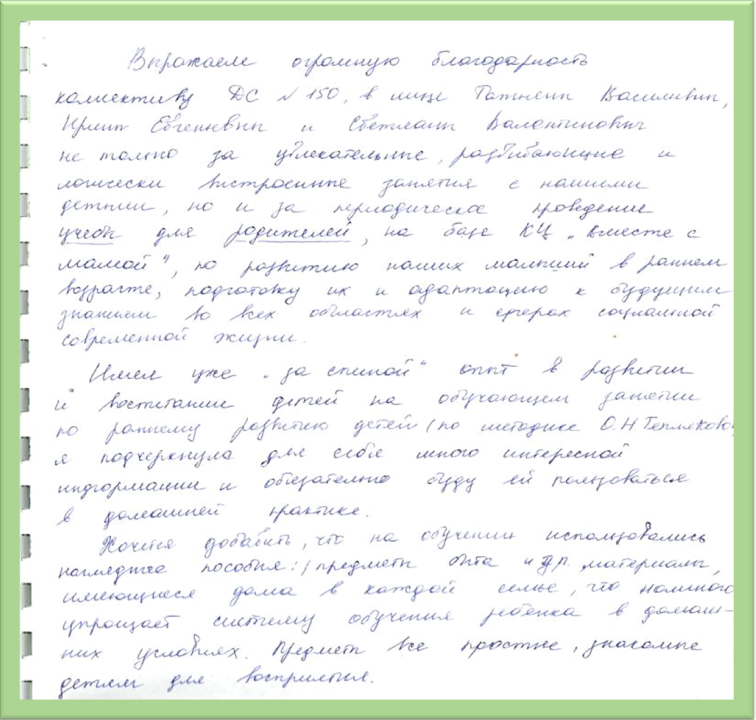 Выражаем огромную благодарность
коллективу ДС №150, в лице Татьяны Васильевны,
Ирины Евгеньевны и Светланы Валентиновны
не только за увлекательные, развивающие и
логически выстроенные занятия с нашими
детьми, но и за периодическое проведение
учебы для родителей, на базе КЦ „Вместе с
мамой", по развитию наших малышей в раннем
возрасте, подготовку их и адаптацию к будущим
знаниям во всех областях и сферах социальной
современной жизни.
Имея уже „за спиной" опыт в развитии
и воспитании детей на обучающем занятии
по раннему развитию детей (по методике О.Н.Тепляково
я подчеркнула для себя много интересной
информации и обязательно буду ей пользоваться
в домашней практике.
Хочется добавить, что на обучении использовались
наглядные пособия: / предметы быта и др. материалы,
имеющиеся дома в каждой семье, что намного
упрощает систему обучения ребёнка в домаш-
них условиях. Предметы все простые, знакомые
детям для восприятия.